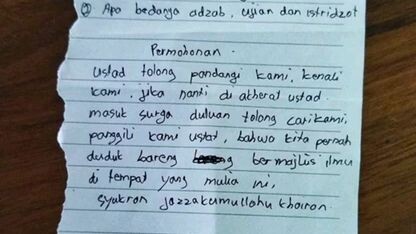 ② Apa bedanya adzab, ujian dan istridzot
Permohonan.
ustad tolong pandangi kami, kenali
kami, jika nanti di akherat ustad
masuk surga duluan tolong carikami,
panggili kami ustat, bahwa kita pernah
duduk bareng bermajlis ilmu
di tempat yang mulia ini,
syukron jazzakumullahu khoiron.